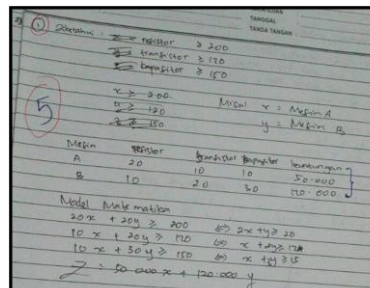 TANGGAL
TANDA TANGAN
1 Diketahui : resistor ≥ 200
transistor ≥ 120
kapasitor ≥ 150
x ≥ 200 Misal x = Mesin A
y ≥ 120 y = Mesin B
z ≥ 150
5
Mesin resistor transistor kapasitor keuntungan
A 20 10 10 50.000
B 10 20 30 120.000
Model Matematika
20x + 20y ≥ 200 ⇔ 2x + y ≥ 20
10x + 20y ≥ 120 ⇔ x + 2y ≥ 12
10x + 30y ≥ 150 ⇔ x + y ≥ 15
Z : 50.000x + 120.000y